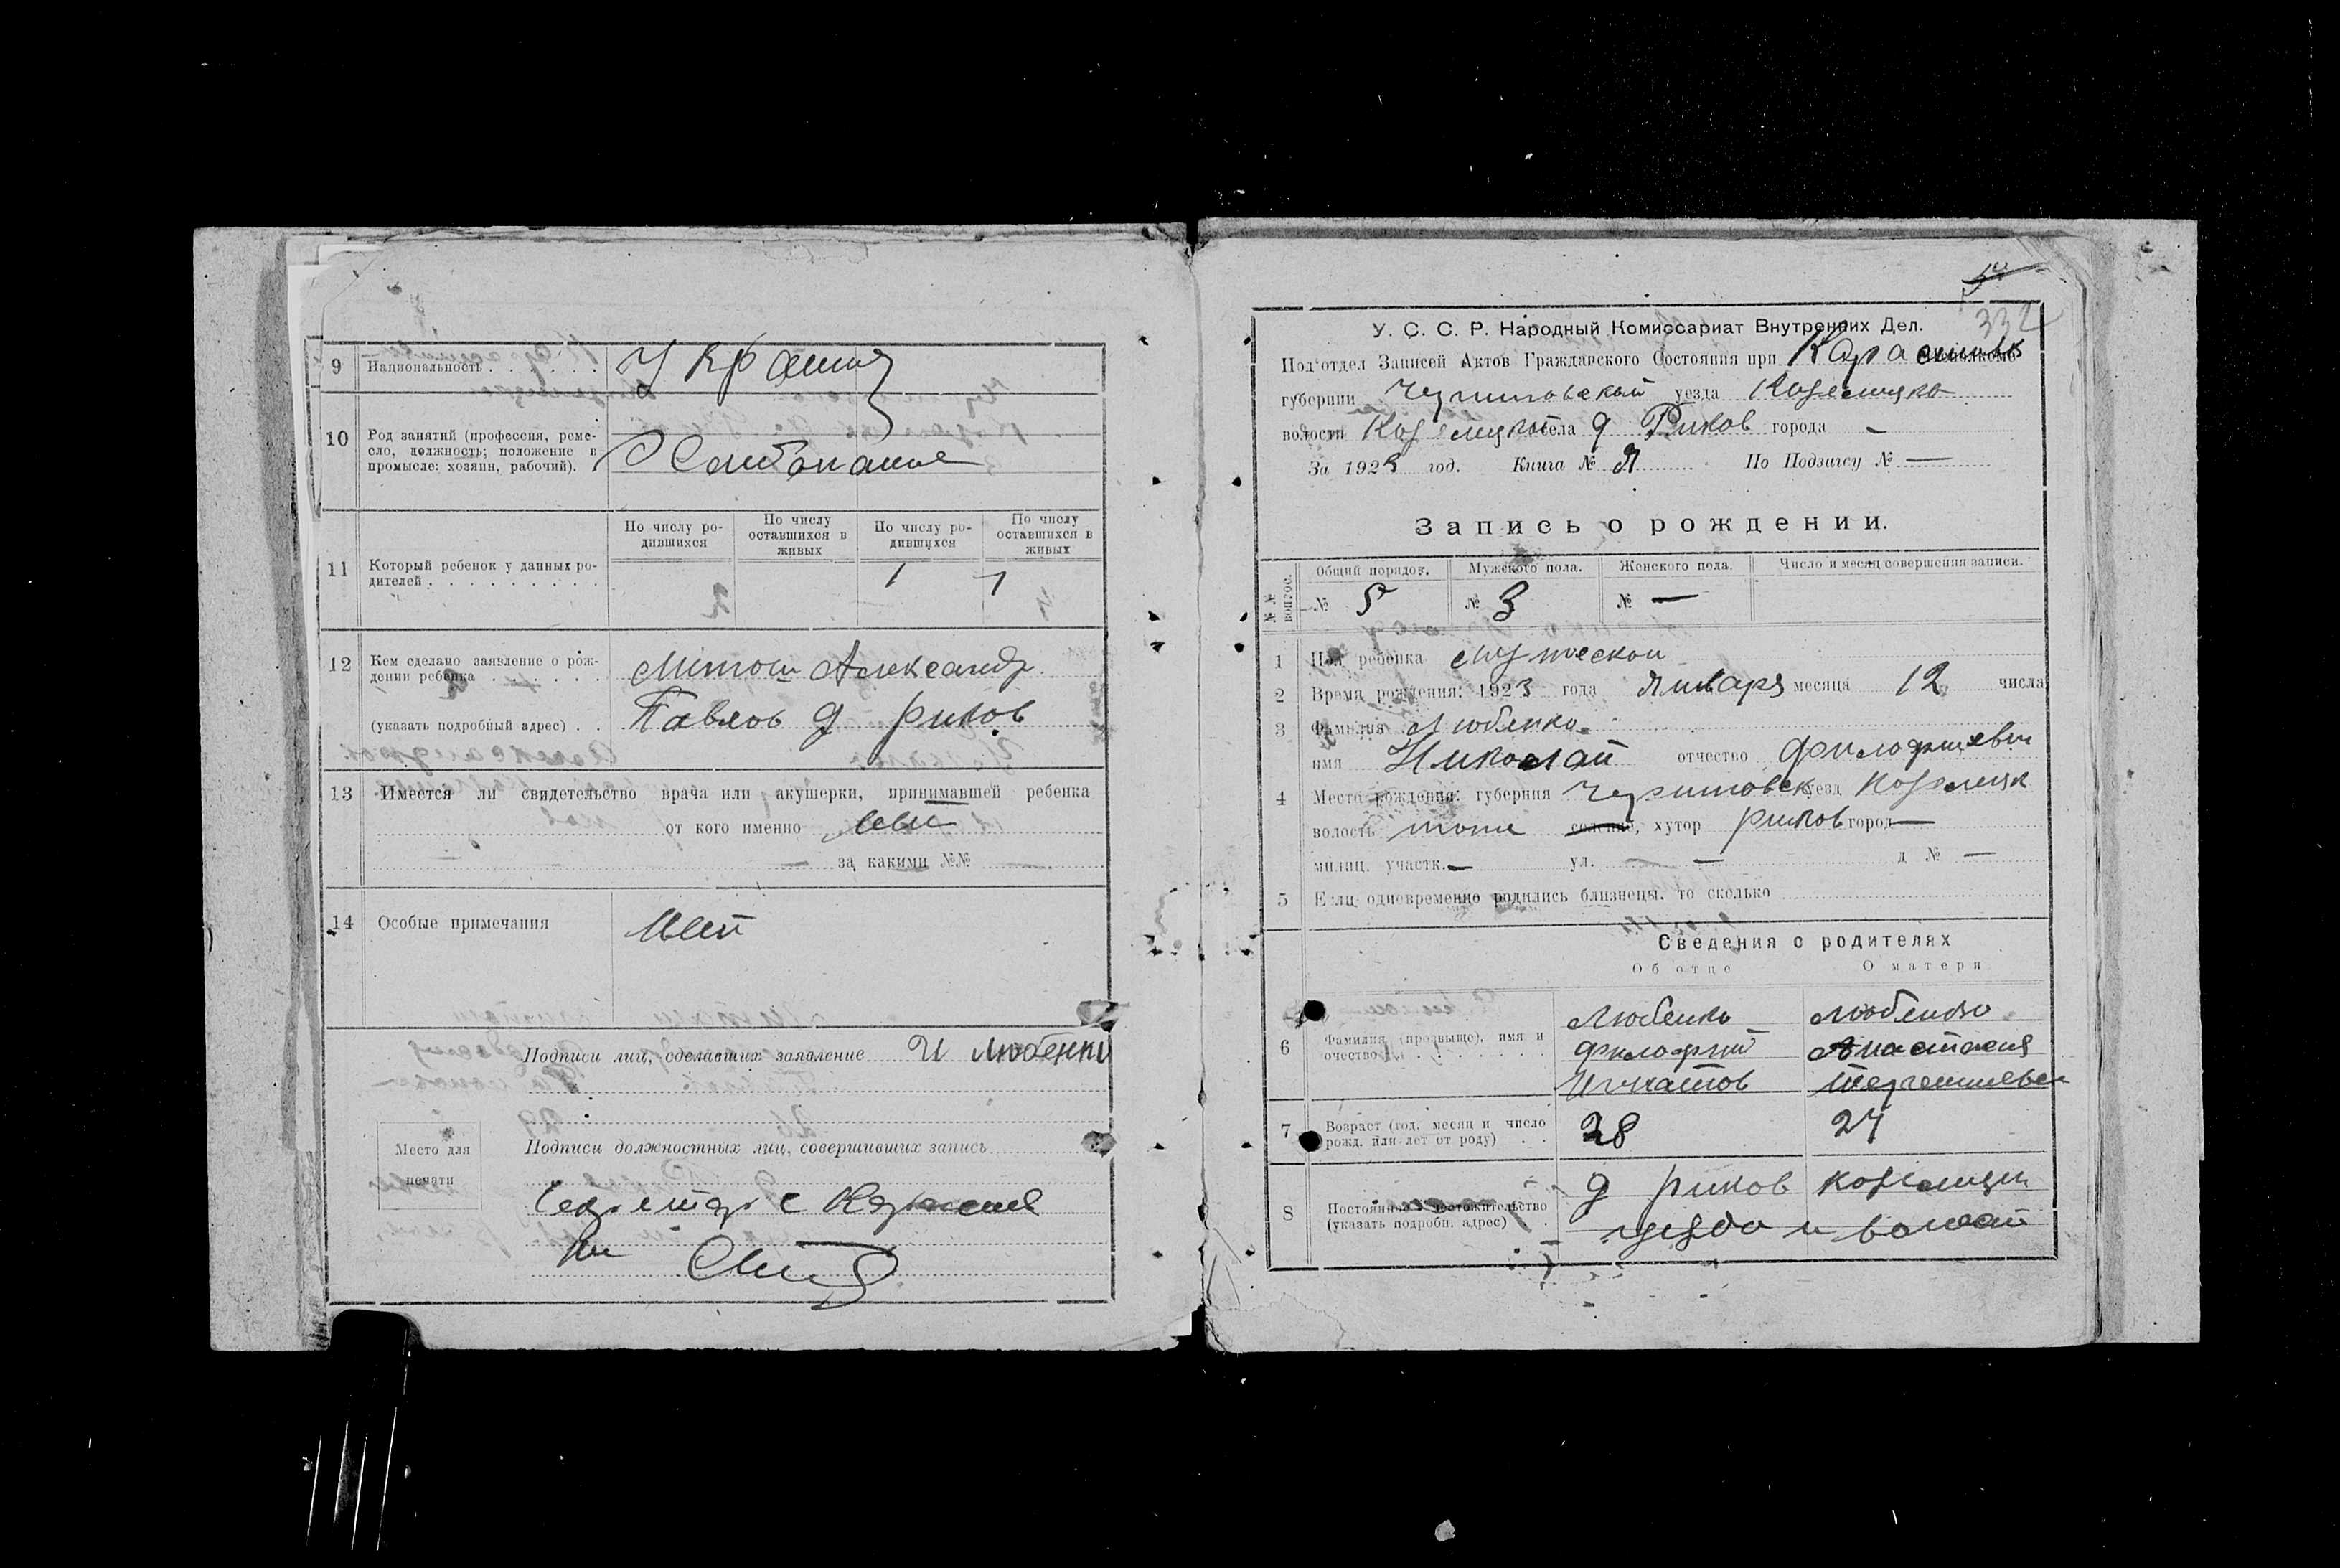 9 Национальность . . . . . . Украинц
10 Род занятий (профессия, реме-
сло, должность; положение в
промысле: хозяин, рабочий).
11 Который ребенок у данных ро-
дителей . . . . . . . . . .
По числу ро-
дившихся
По числу
оставшихся в
живых
По числу ро-
дившихся
По числу
оставшихся в
живых
1 1
12 Кем сделано заявление о рож-
дении ребенка . . . . . . . Александр
(указать подробный адрес) . . Павлов д Риков
13 Имеется ли свидетельство врача или акушерки, принимавшей ребенка
от кого именно нет
— за какими №№ —
14 Особые примечания нет
Подписи лиц, сделавших заявление И Любенко
Подписи должностных лиц, совершивших запись
Место для
печати
332
У. С. С. Р. Народный Комиссариат Внутренних Дел.
Под'отдел Записей Актов Гражданского Состояния при
губернии Черниговской уезда Козелицко
волости Козелицкой села д Риков города —
За 1923 год. Книга № Я По Подзагсу № —
Запись о рождении.
№№ вопрос.
Общий порядок. Мужского пола. Женского пола. Число и месяц совершения записи.
№ 5 № 3 № —
1 Пол ребенка мужеской
2 Время рождения: 1923 года Января месяца 12 числа
3 Фамилия Любенко
имя Николай отчество
4 Место рождения: губерния Черниговск уезд Козелицк
волость тоже селение, хутор Риков город —
милиц. участк. — ул. — — д № —
5 Если одновременно родились близнецы. то сколько
Сведения о родителях
Об отце О матери
6 Фамилия (прозвыще). имя и
очество . . . . . . . .
Любенко
Игнатов
Любенко
Анастасия
7 Возраст (год. месяц и число
рожд. или лет от роду) . .
28 24
8 Постоянное местожительство
(указать подробн. адрес) .
д Риков Козелицк
уезда и волост